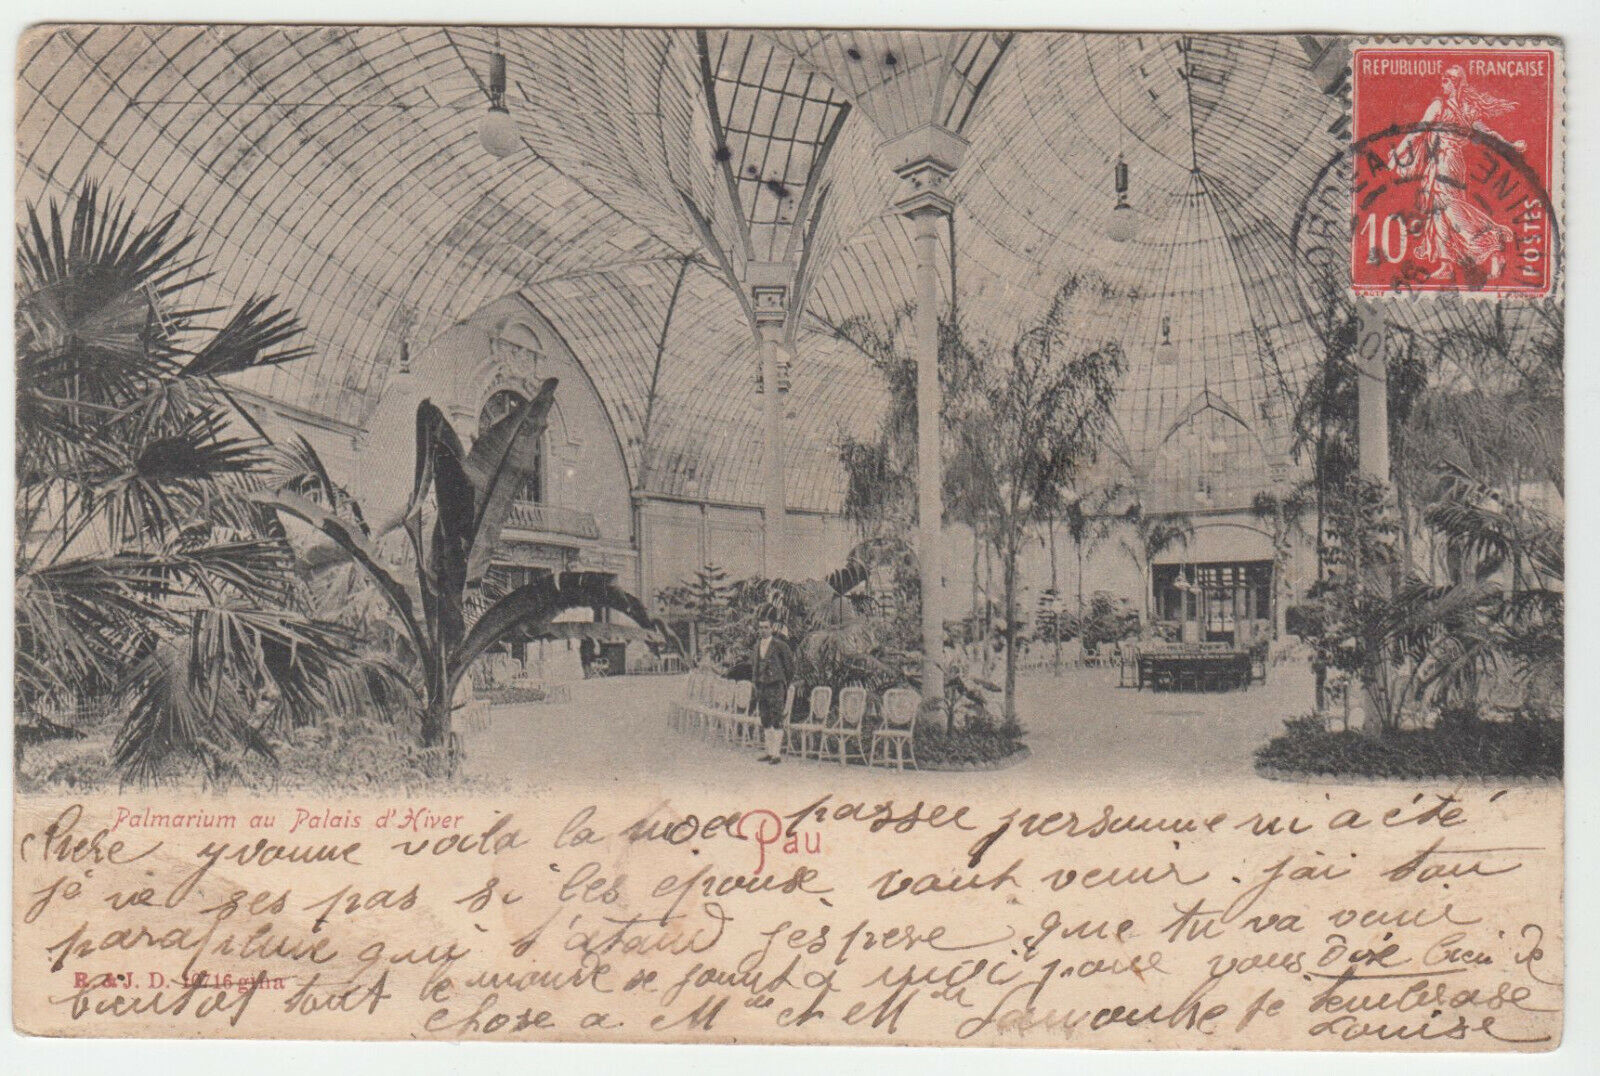 REPUBLIQUE FRANÇAISE
10
POSTES
BORDEAUX
Palmarium au Palais d'Hiver
Pau
Chere yvonne voila la noce passee personne ni a été
je ne ses pas si les epouse vont venir . j'ai ton
paraplue qui t'atand j'espere que tu va venir
bientot tout le monde se joint a moi pour vous dire bien de
R. & J. D. 10716
chose a Mme et Mr je t'embrase
Louise